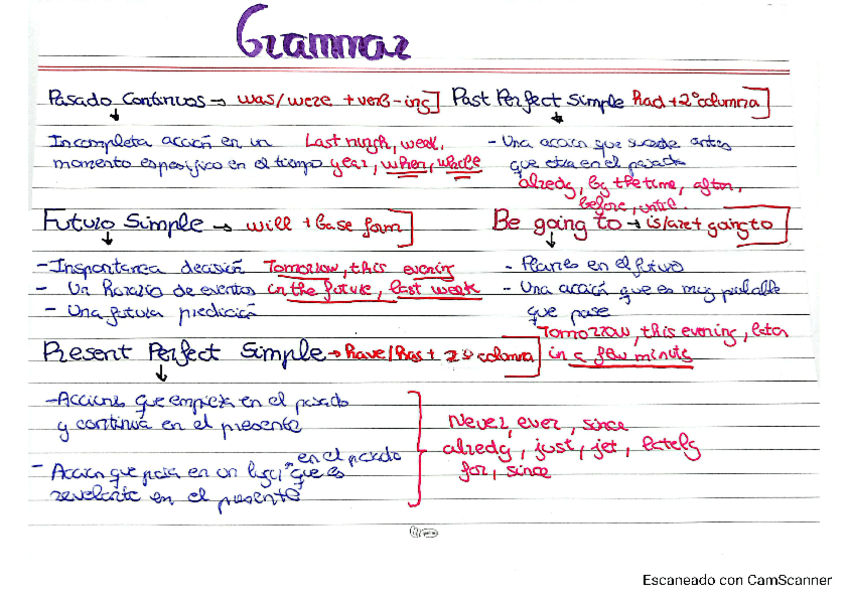 Grammar
Pasado Continuos → was/were + verb-ing] Past Perfect Simple Had + 2º columna]
Incompleta acción en un Last ningh, week,
momento especifico en el tiempo year, when, while
- Una acción que sucede antes
que otra en el pasado
alredy, by the time, after,
before, until.
Futuro Simple → will + base form] Be going to → is/are + going to
- Inspontanea decisión Tomorrow, this evening
- Un horario de eventos in the future, last week
- Una futura predicción
- Planes en el futuro
- Una acción que es muy probable
que pase
Tomorrow, this evening, later
in a few minute
Present Perfect Simple → have/has + 2º columna
- Acciones que empieza en el pasado
y continua en el presente
- Acción que pasa en un lugar en el pasado que es
revelante en el presente
Never, ever, since
alredy, just, jet, lately
for, since
Escaneado con CamScanner